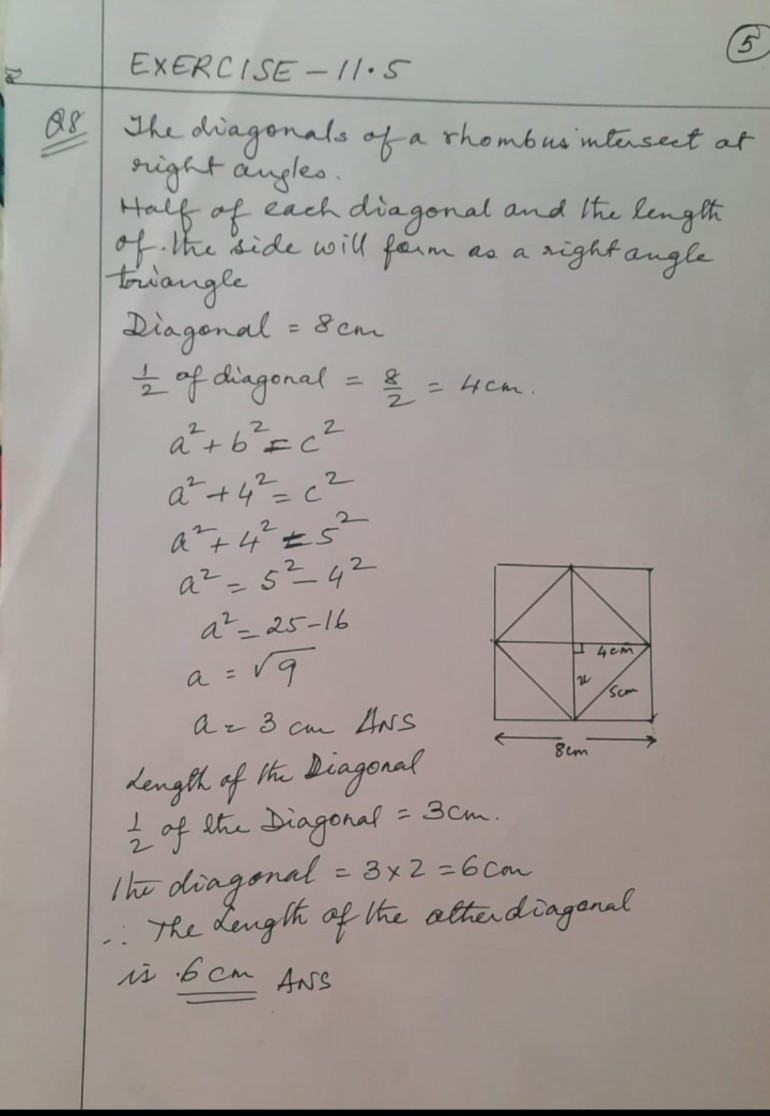 5
EXERCISE - 11.5
Q8 The diagonals of a rhombus intersect at
right angles.
Half of each diagonal and the length
of the side will form as a right angle
triangle
Diagonal = 8cm
1/2 of diagonal = 8/2 = 4cm.
a² + b² = c²
a² + 4² = c²
a² + 4² = 5²
a² = 5² - 4²
a² = 25-16
a = √9
a = 3 cm ANS
4cm
x
5cm
8cm
Length of the Diagonal
1/2 of the Diagonal = 3cm.
The diagonal = 3 × 2 = 6cm
∴ The Length of the other diagonal
is 6cm ANS